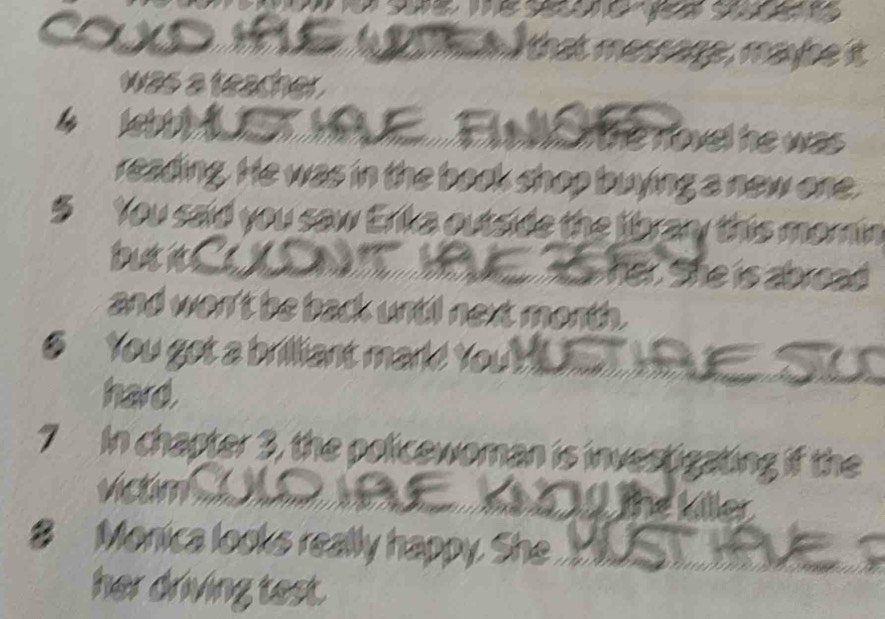 for sure. The second-year students
COULD HAVE WRITTEN that message, maybe it
was a teacher.
4 MUST HAVE FINISHED the novel he was
reading. He was in the book shop buying a new one.
5 You said you saw Erika outside the library this mornin
but it COULDN'T HAVE BEEN her. She is abroad
and won't be back until next month.
6 You got a brilliant mark! You MUST HAVE STUD
hard.
7 In chapter 3, the policewoman is investigating if the
victim HAVE the killer.
8 Monica looks really happy. She MUST HAVE
her driving test.